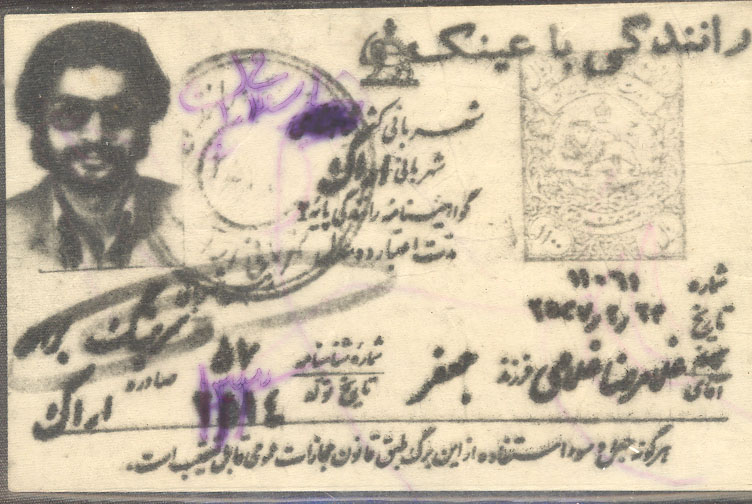 رانندگی با عینک
شهربانی کشور
شهربانی اراک
گواهینامه رانندگی پایه ۲
مدت اعتبار ده سال
شماره ۱۱۰۶۱
تاریخ
آقای غلامرضا غلامی فرزند جعفر
شماره شناسنامه ۵۷
تاریخ تولد
صادره اراک
سرهنگ
هرگونه جعل و سوء استفاده از این برگ طبق قانون مجازات عمومی قابل تعقیب است.